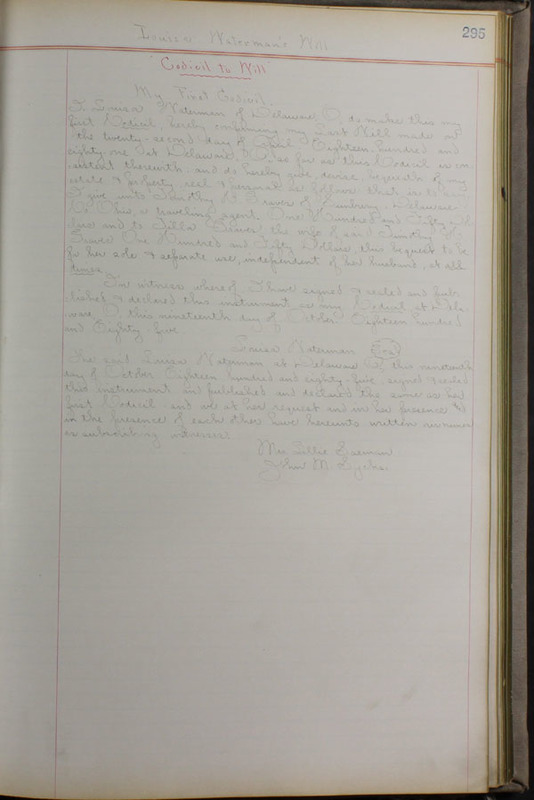 295
Louisa Waterman's Will
"Codicil to Will"
My First Codicil.
I Louisa Waterman of Delaware O. do make this my
first Codicil, hereby confirming my Last Will made on
the twenty-second day of April Eighteen hundred and
eighty-one at Delaware, O. so far as this Codicil is con-
sistent therewith, and do hereby give, devise, bequeath of my
estate & property, real & personal as follows that is to say
I give unto Timothy Graves of Sunbury, Delaware
Co Ohio, a traveling agent, One Hundred and Fifty Dol-
lars and to Graves the wife of said Timothy
Graves One Hundred and Fifty Dollars, this bequest to be
for her sole & separate use, independent of her husband, at all
times.
In witness whereof, I have signed & sealed and pub-
lished & declared this instrument, as my Codicil at Dela-
ware O. this nineteenth day of October Eighteen hundred
and Eighty five.
Louisa Waterman Seal
The said Louisa Waterman at Delaware O. this nineteenth
day of October Eighteen hundred and eighty-five, signed & sealed
this instrument and published and declared the same as her
first Codicil, and we at her request and in her presence &
in the presence of each other have hereunto written our names
as subscribing witnesses
Mrs Lillie
John M.